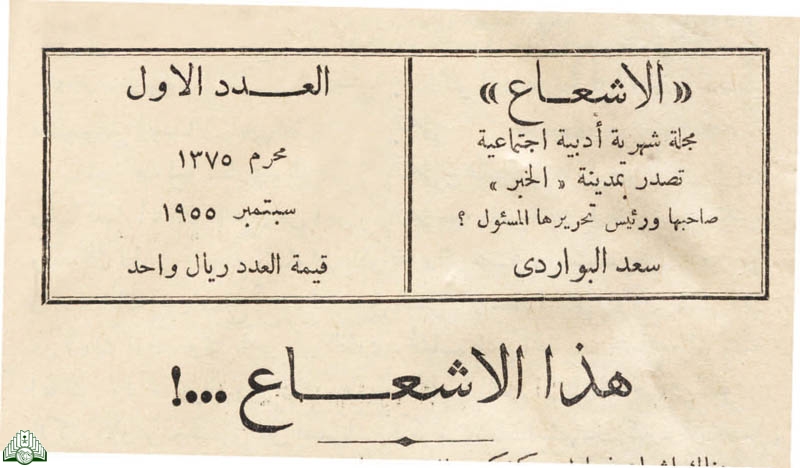 «الاشعاع»
مجلة شهرية أدبية اجتماعية
تصدر بمدينة «الخبر»
صاحبها ورئيس تحريرها المسئول ؟
سعد البواردى
العدد الاول
محرم ١٣٧٥
سبتمبر ١٩٥٥
قيمة العدد ريال واحد
هذا الاشعاع ...!